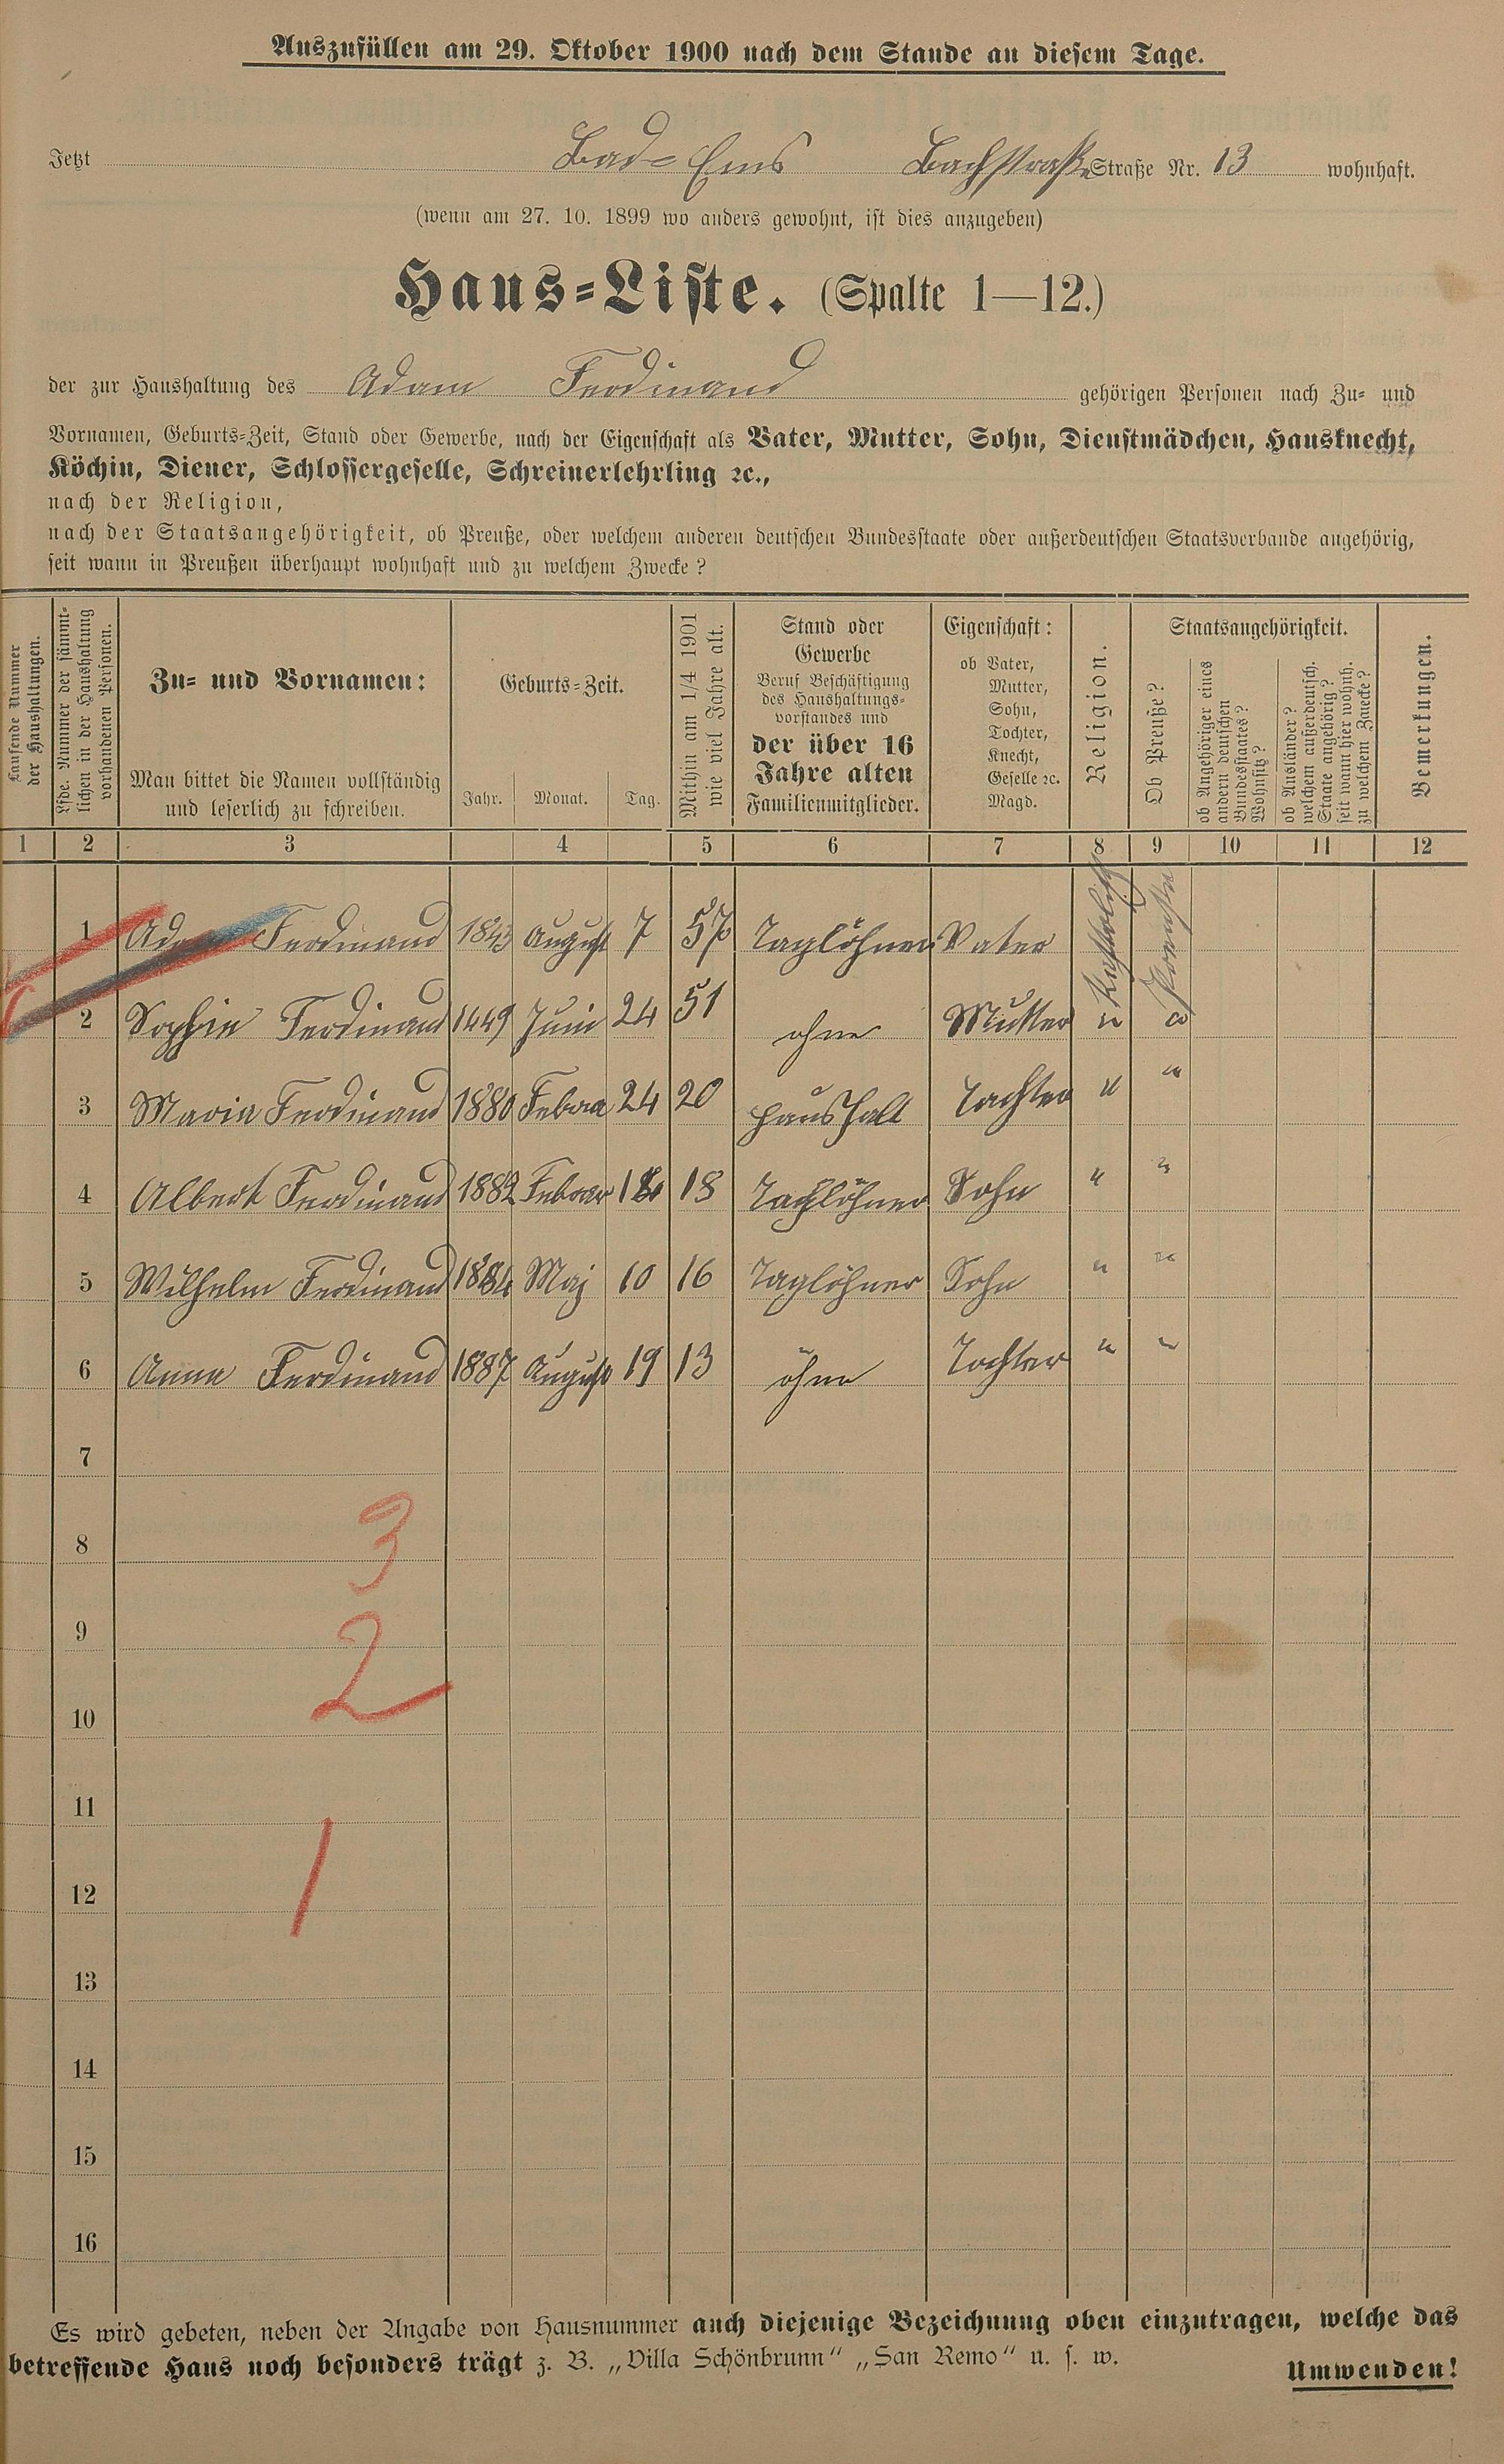 Auszufüllen am 29. Oktober 1900 nach dem Stande an diesem Tage.
Jetzt Bad-Ems Bachstraße Straße Nr. 13 wohnhaft.
(wenn am 27. 10. 1899 wo anders gewohnt, ist dies anzugeben)
Haus-Liste. (Spalte 1—12.)
der zur Haushaltung des Adam Ferdinand gehörigen Personen nach Zu- und
Vornamen, Geburts-Zeit, Stand oder Gewerbe, nach der Eigenschaft als Vater, Mutter, Sohn, Dienstmädchen, Hausknecht,
Köchin, Diener, Schlossergeselle, Schreinerlehrling ꝛc.,
nach der Religion,
nach der Staatsangehörigkeit, ob Preuße, oder welchem anderen deutschen Bundesstaate oder außerdeutschen Staatsverbande angehörig,
seit wann in Preußen überhaupt wohnhaft und zu welchem Zwecke?
Laufende Nummer
der Haushaltungen.
Lfde. Nummer der sämmt-
lichen in der Haushaltung
vorhandenen Personen.
Zu- und Vornamen:
Man bittet die Namen vollständig
und leserlich zu schreiben.
Geburts-Zeit.
Jahr. Monat. Tag.
Mithin am 1/4 1901
wie viel Jahre alt.
Stand oder
Gewerbe
Beruf Beschäftigung
des Haushaltungs-
vorstandes und
der über 16
Jahre alten
Familienmitglieder.
Eigenschaft:
ob Vater,
Mutter,
Sohn,
Tochter,
Knecht,
Geselle ꝛc.
Magd.
Religion.
Staatsangehörigkeit.
Ob Preuße?
ob Angehöriger eines
andern deutschen
Bundesstaates?
Wohnsitz?
ob Ausländer?
welchem außerdeutsch.
Staate angehörig?
seit wann hier wohnh.
zu welchem Zwecke?
Bemerkungen.
1 2 3 4 5 6 7 8 9 10 11 12
1 Adam Ferdinand 1843 August 7 57 Taglöhner Vater Katholisch Preuße
2 Sophie Ferdinand 1449 Juni 24 51 ohne Mutter " "
3 Maria Ferdinand 1880 Februa 24 20 Haushalt Tochter " "
4 Albert Ferdinand 1882 Februar 18 Taglöhner Sohn " "
5 Wilhelm Ferdinand 1884 Maj 10 16 Taglöhner Sohn " "
6 Anna Ferdinand 1887 August 19 13 ohne Tochter " "
7
8 3
9
10 2
11
12 1
13
14
15
16
Es wird gebeten, neben der Angabe von Hausnummer auch diejenige Bezeichnung oben einzutragen, welche das
betreffende Haus noch besonders trägt z. B. „Villa Schönbrunn“ „San Remo“ u. s. w.
Umwenden!